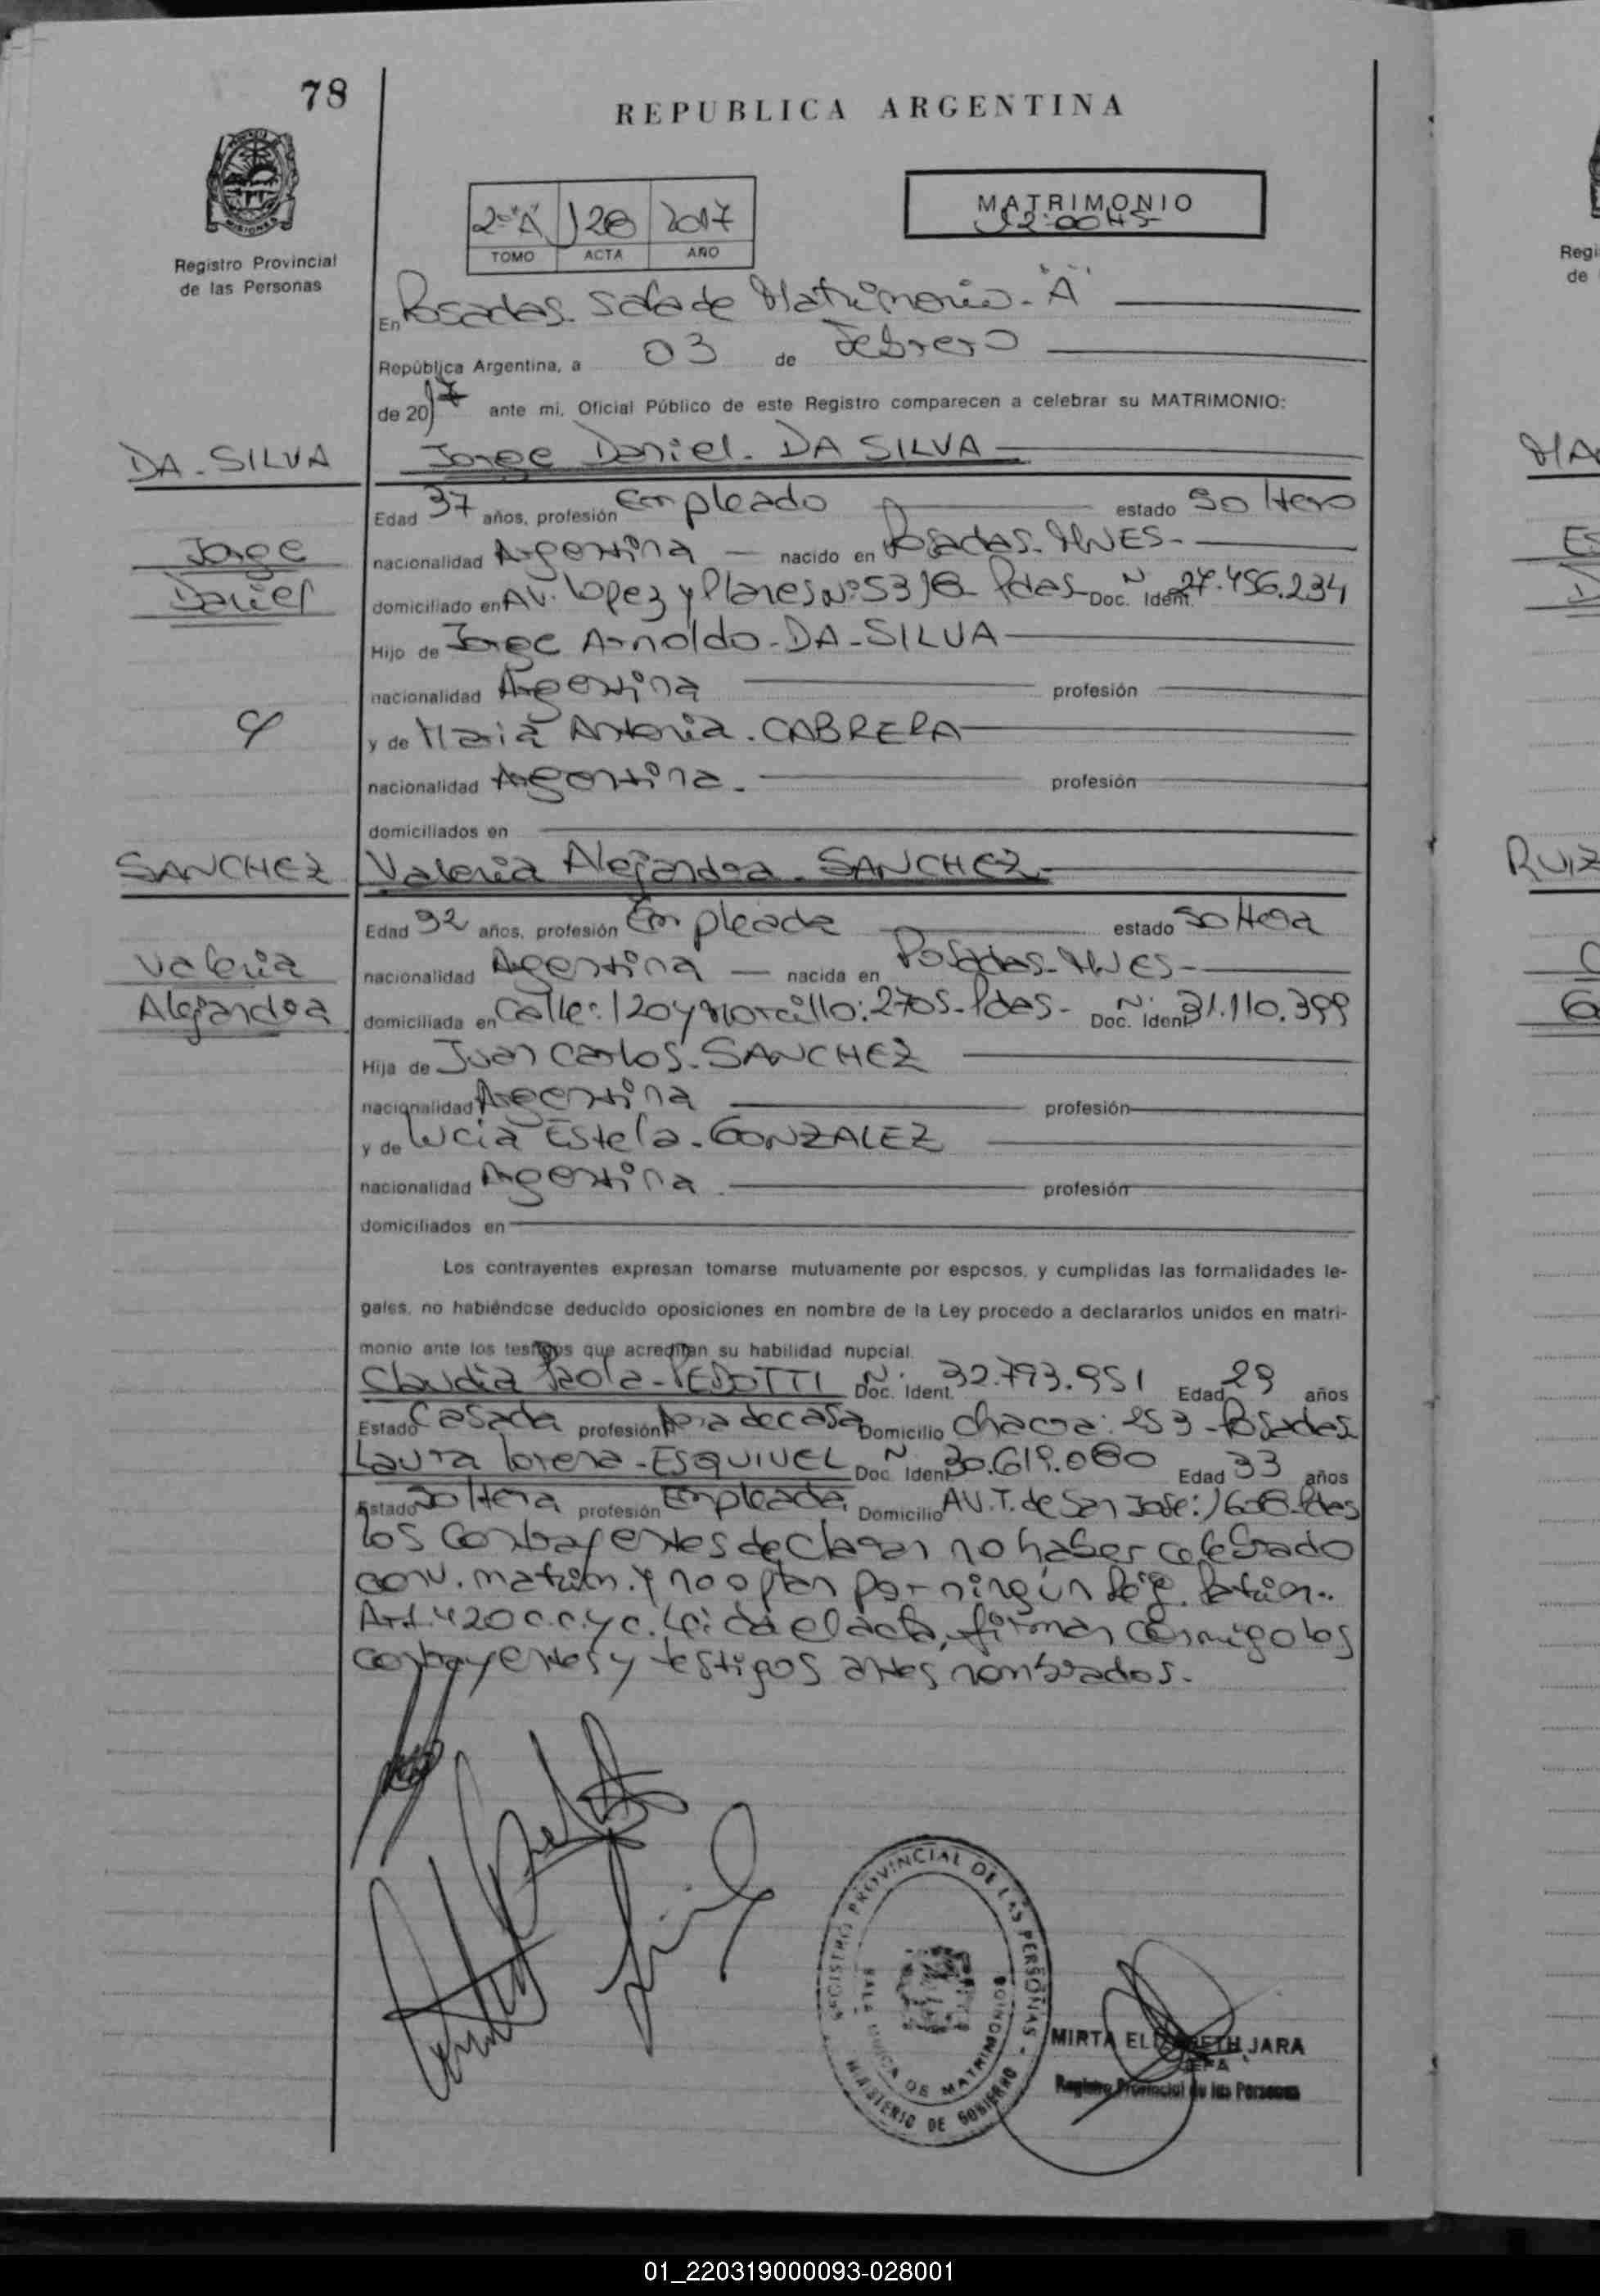 78
REPUBLICA ARGENTINA
MISIONES
Registro Provincial
de las Personas
2º "A" 128 2017
TOMO ACTA AÑO
MATRIMONIO
12:00 HS
En Posadas. Sala de Matrimonio. "A"
República Argentina, a 03 de Febrero
de 2017 ante mi, Oficial Público de este Registro comparecen a celebrar su MATRIMONIO:
DA - SILVA Jorge Daniel. DA SILVA
Edad 37 años, profesión Empleado estado Soltero
Jorge nacionalidad Argentina - nacido en Posadas. MNES.
Daniel domiciliado en AV. Lopez y Planes Nº 5318 Pdas Doc. Ident. Nº 27.456.234
Hijo de Jorge Arnoldo - DA - SILVA
nacionalidad Argentina profesión
y y de Maria Antonia. CABRERA
nacionalidad Argentina. profesión
domiciliados en
SANCHEZ Valeria Alejandra. SANCHEZ
Edad 32 años, profesión Empleada estado Soltera
Valeria nacionalidad Argentina - nacida en Posadas - MNES
Alejandra domiciliada en Calle: 120 y Morcillo: 2705 - Pdas - Doc. Ident. Nº 31.110.399
Hija de Juan Carlos. SANCHEZ
nacionalidad Argentina profesión
y de Lucia Estela. GONZALEZ
nacionalidad Argentina profesión
domiciliados en
Los contrayentes expresan tomarse mutuamente por esposos, y cumplidas las formalidades le-
gales, no habiéndose deducido oposiciones en nombre de la Ley procedo a declararlos unidos en matri-
monio ante los testigos que acreditan su habilidad nupcial.
Claudia Paola - PEDOTTI Doc. Ident. Nº 32.793.951 Edad 29 años
Estado Casada profesión Ama de casa Domicilio Chacra: 253 - Posadas
Laura Lorena - ESQUIVEL Doc. Ident. Nº 30.619.080 Edad 33 años
Estado Soltera profesión Empleada Domicilio AV. T. de San José: 1608 - Pdas
Los contrayentes declaran no haber celebrado
conv. matrim. y no optan por ningún Rég. Patrim.
Art. 420 c.c. y c. Leida el acta, firman conmigo los
contrayentes y testigos antes nombrados.
REGISTRO PROVINCIAL DE LAS PERSONAS -
SALA UNICA DE MATRIMONIOS
MINISTERIO DE GOBIERNO
MIRTA ELIZABETH JARA
JEFA
Registro Provincial de las Personas
MA
ES
D
RUIZ
C
Regi
de
01_220319000093-028001